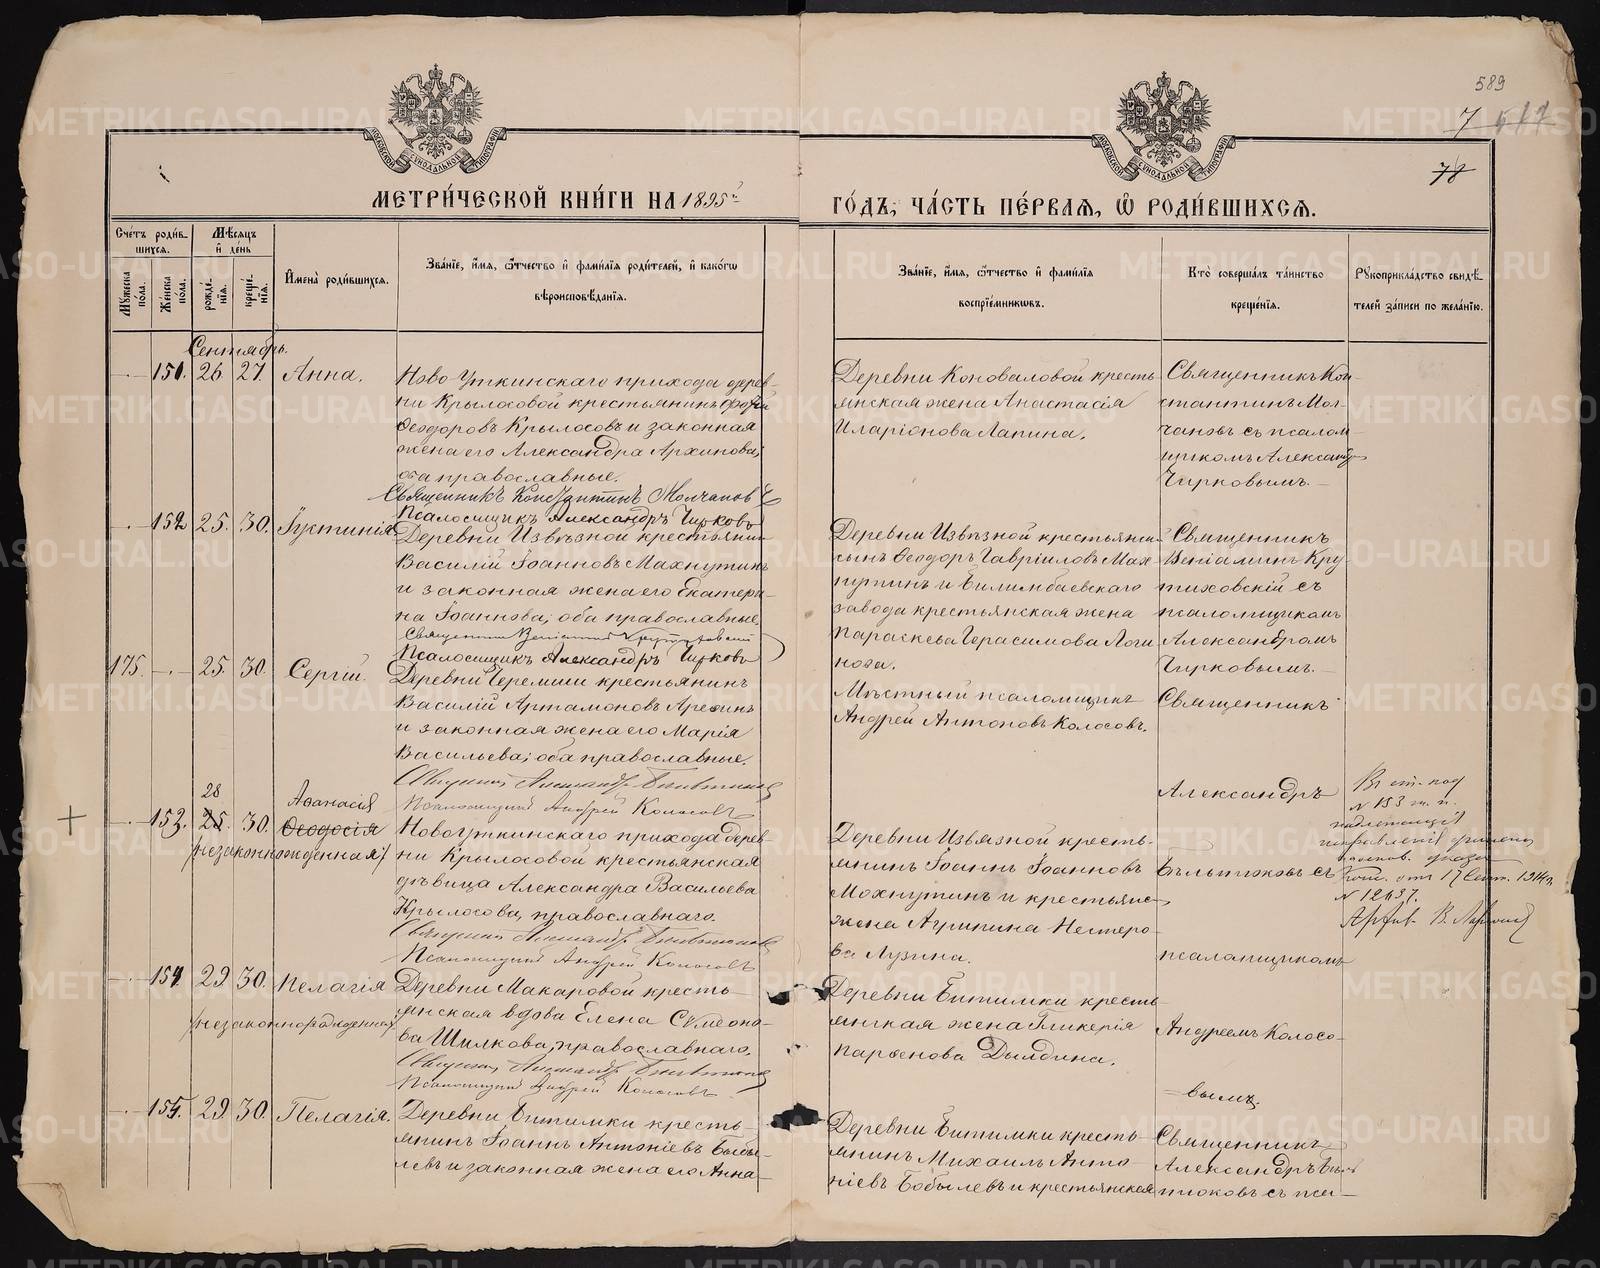 589
7
78
МОСКОВСКОЙ СУНОДАЛЬНОЙ ТИПОГРАФІИ
МОСКОВСКОЙ СУНОДАЛЬНОЙ ТИПОГРАФІИ
МЕТРИ́ЧЕСКОЙ КНИ́ГИ НА 1895й
ГО́ДЪ, ЧА́СТЬ ПЕ́РВАЯ, Ѡ РОДИ́ВШИХСЯ.
Счетъ родив-
шихся.
Мужеска пола.
Женска пола.
Мѣсяцъ
и день
рожде-
нія.
креще-
нія.
Имена родившихся.
Званіе, имя, отчество и фамилія родителей, и какого
вѣроисповѣданія.
Званіе, имя, отчество и фамилія
воспріемниковъ.
Кто совершалъ таинство
крещенія.
Рукоприкладство свидѣ-
телей записи по желанію.
Сентябрь.
151. 26 27. Анна.
Ново-Уткинскаго прихода дерев-
ни Крылосовой крестьянинъ
Ѳеодоровъ Крылосовъ и законная
жена его Александра Архипова;
оба православные.
Священникъ Константинъ Молчановъ
Псаломщикъ Александръ Чирковъ
Деревни Коноваловой кресть-
янская жена Анастасія
Иларіонова Лапина.
Священникъ Кон-
стантинъ Мол-
чановъ съ псалом-
щикомъ Александ
Чирковымъ.
152 25. 30. Іустинія
Деревни Извѣзной крестьянин
Василій Іоанновъ Махнутинъ
и законная жена его Екатери-
на Іоаннова; оба православные
Псаломщикъ Александръ Чирковъ
Деревни Извѣзной крестьянин
сынъ Ѳеодоръ Гавріиловъ Мах
нутинъ и Билимбаевскаго
завода крестьянская жена
Параскева Герасимова Логи
нова.
Священникъ
Веніаминъ Кру
тиховскій съ
псаломщикомъ
Александромъ
Чирковымъ.
175. 25. 30. Сергій.
Деревни Черемши крестьянинъ
Василій Артамоновъ Арефинъ
и законная жена его Марія
Васильева; оба православные.
Псаломщикъ Андрей Колосовъ
Мѣстный псаломщикъ
Андрей Антоновъ Колосовъ.
Священникъ
28
Аѳанасія
153. 25. 30. Ѳеодосія
(незаконнорожденная)
Новоуткинскаго прихода дерев-
ни Крылосовой крестьянская
дѣвица Александра Васильева
Крылосова, православнаго.
Псаломщикъ Андрей Колосовъ
Деревни Извѣзной кресть-
янинъ Іоаннъ Іоанновъ
Мохнутинъ и крестьянс-
жена Агрипина Нестеро-
ва Лузина.
Александръ
Бѣльтюковъ съ
псаломщикомъ
N 153 ж. п.
N 12637.
154. 29 30. Пелагія
(незаконнорожденная)
Деревни Макаровой кресть-
янская вдова Елена Сѵмеоно-
ва Шилкова, православнаго.
Псаломщикъ Андрей Колосовъ.
Деревни Битимки кресть-
янская жена Гликерія
Парѳенова Дылдина.
Андреемъ Колосо-
=вымъ.
155. 29 30. Пелагія.
Деревни Битимки кресть-
янинъ Іоаннъ Антоніевъ Бобы-
левъ и законная жена его Анна-
Деревни Битимки кресть-
янинъ Михаилъ Анто-
ніевъ Бобылевъ и крестьянская
Священникъ
Александръ Бѣль
тюковъ съ пса-
METRIKI.GASO-URAL.RU